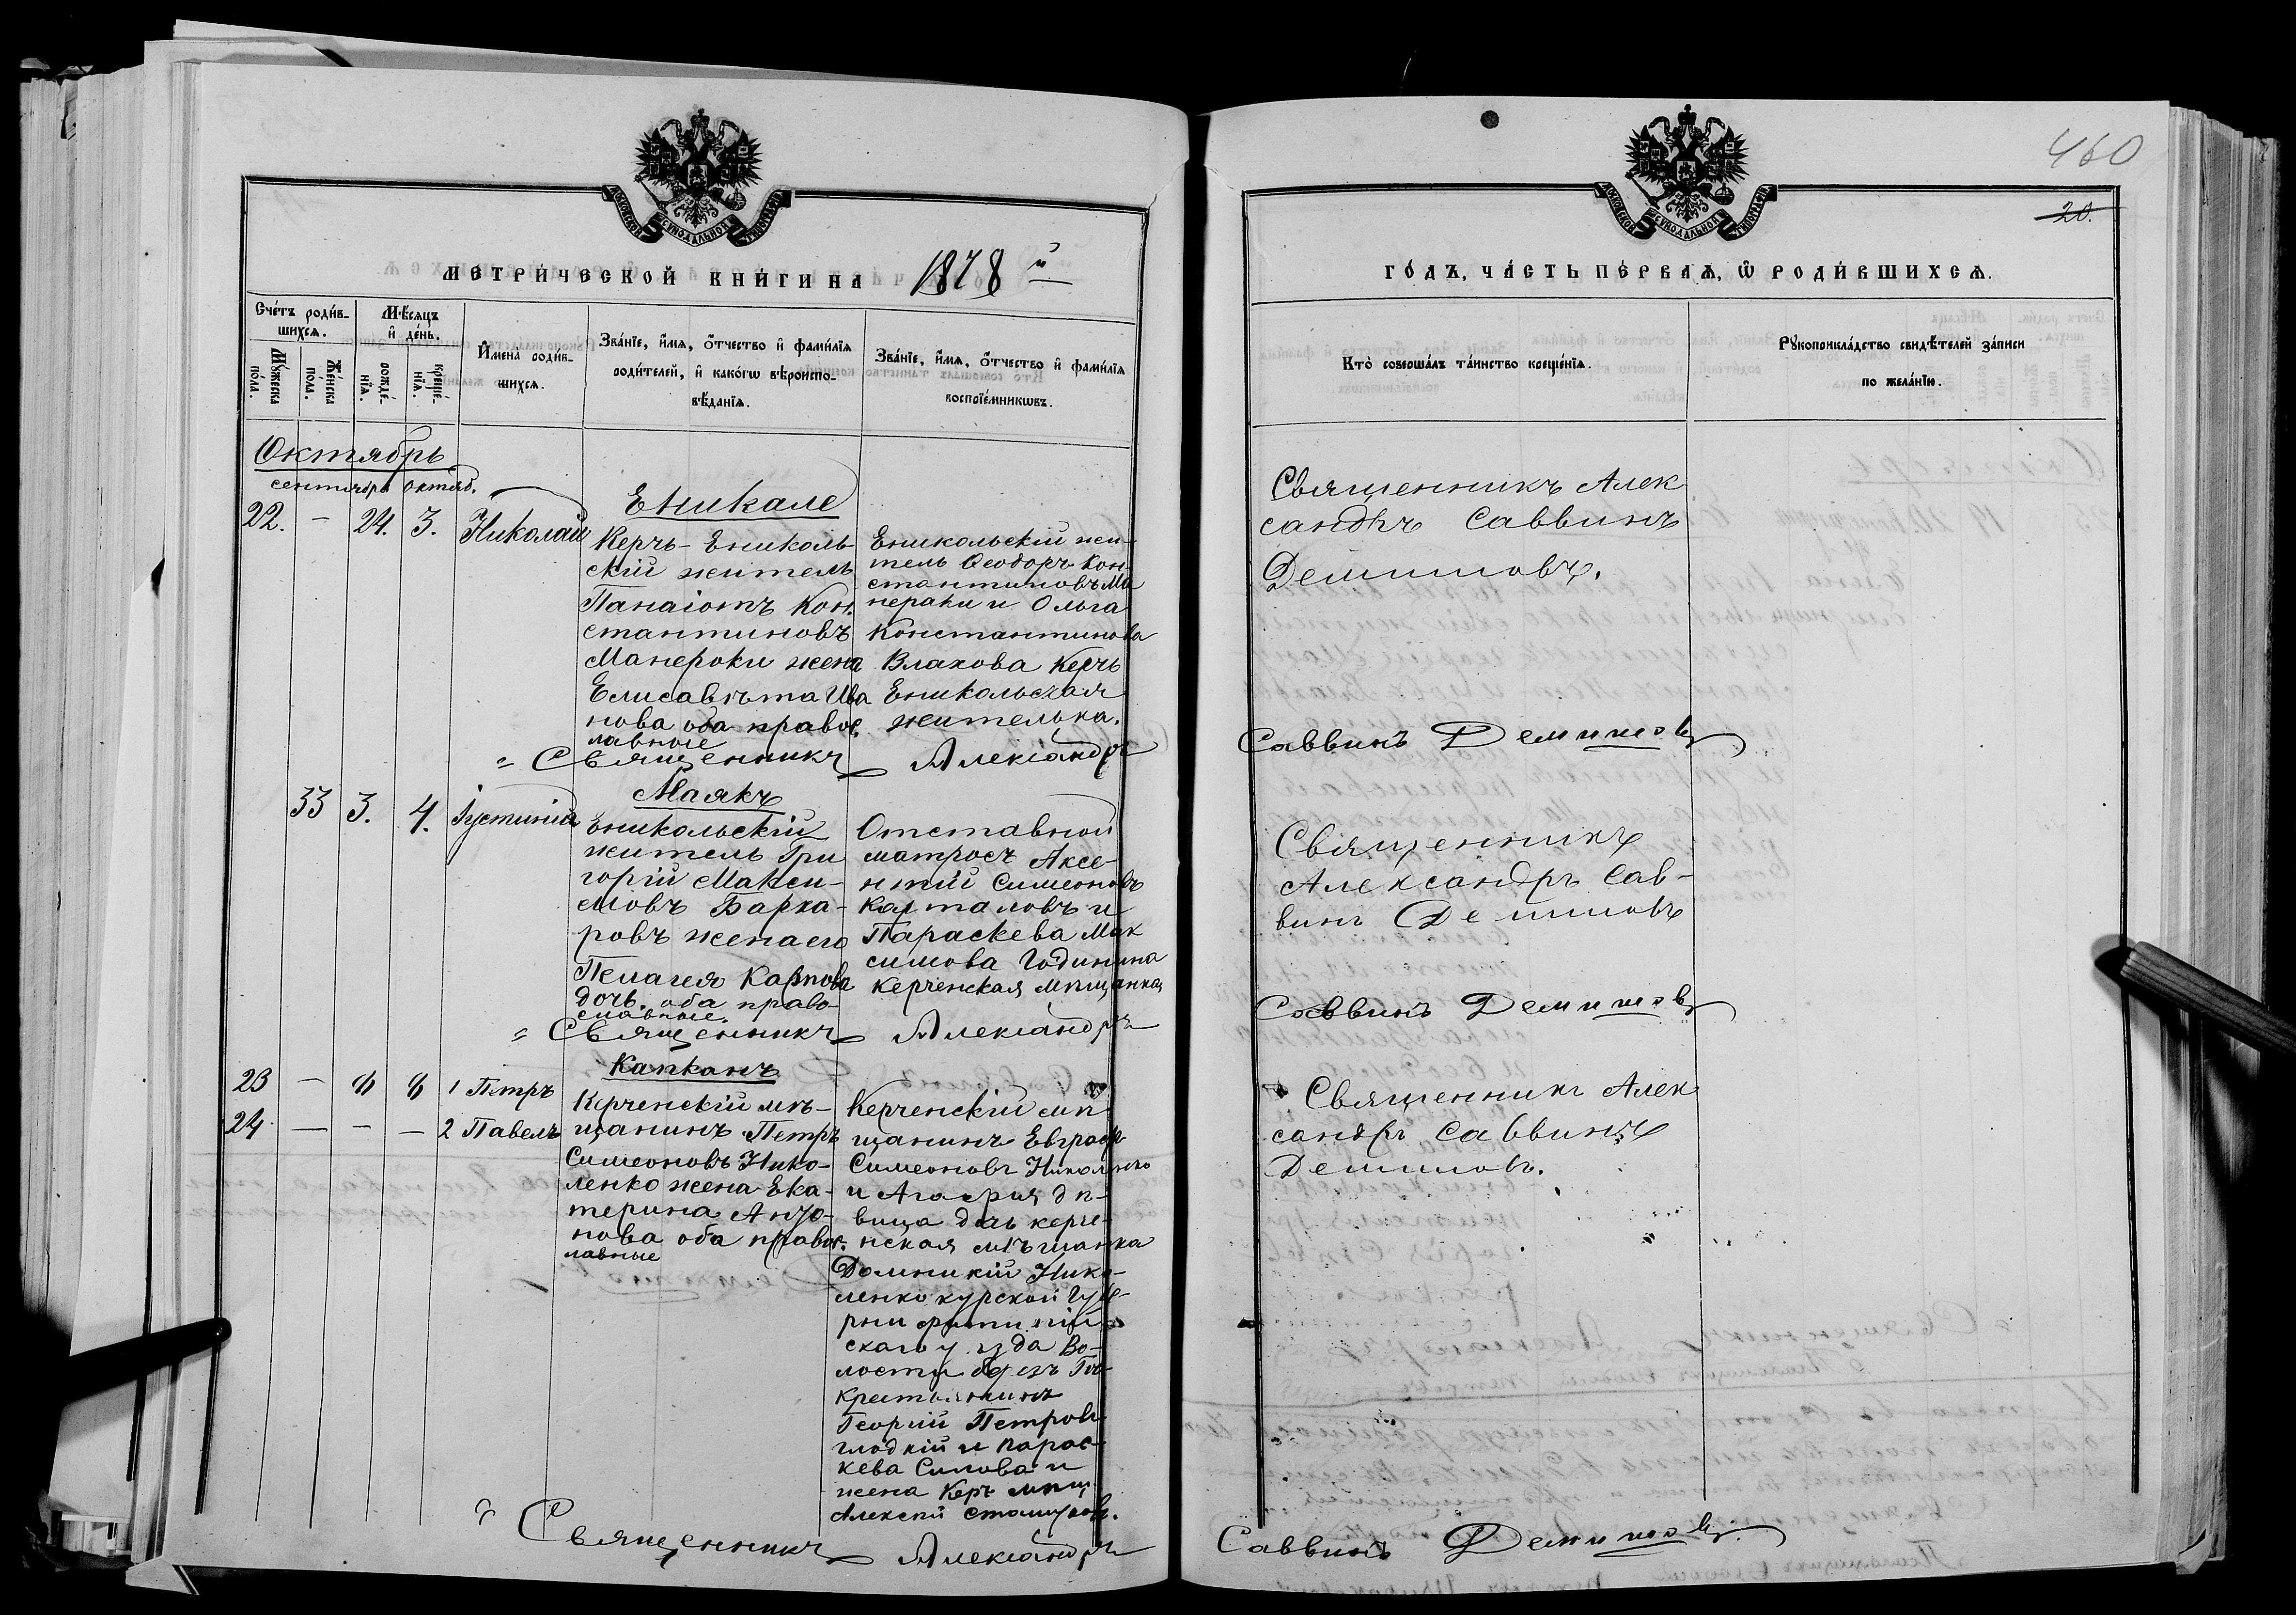 460
20.
МОСКОВСКОЙ СѴНОДАЛЬНОЙ ТИПОГРАФІИ
МОСКОВСКОЙ СѴНОДАЛЬНОЙ ТИПОГРАФІИ
МЕТРИ́ЧЕСКОЙ КНИ́ГИ НА 1878 й
ГО́ДЪ, ЧА́СТЬ ПЕ́РВАѦ, Ѡ РОДИ́ВШИХСѦ.
Сче́тъ роди́в-
шихсѧ.
Мꙋ́жеска по́ла.
Же́нска по́ла.
Мѣ́сяцъ
и҆ де́нь.
рожде́-
нїѧ.
креще́-
нїѧ.
И҆мена роди́в-
шихсѧ.
Зва́нїе, и҆́мѧ, ѻ҆́тчество и҆ фами́лїѧ
роди́телей, и҆ како́гѡ вѣроиспо-
вѣ́данїѧ.
Зва́нїе, и҆́мѧ, ѻ҆́тчество и҆ фами́лїѧ
воспрїе́мникѡвъ.
Кто̀ соверша́лъ та́инство креще́нїѧ.
Рꙋкоприкла́дство свидѣ́телей за́писи
по жела́нїю.
Октябрь
сентября Октяб.
22. — 24. 3. Николай
Еникале
Керчь-Ениколь
скій житель
Панаіотъ Кон.
стантиновъ
Манероки жена
Елисавѣта Ива
нова оба правос.
лавные
Еникольскій жи-
тель Ѳеодоръ Кон-
стантиновъ Ма
нераки и Ольга
Константинова
Влахова Керчь
Еникольская
жителька.
Священникъ Алек
сандръ Саввинъ
Демишовъ.
Священникъ Александръ Саввинъ Демишовъ
33 3. 4. Іустинія
Маякъ
Еникольскій
житель Гри
горій Макси-
мовъ Барха-
ровъ жена его
Пелагея Карпова
дочь. оба право-
славные.
Отставной
матросъ Аксе-
нтій Симеоновъ
Карталовъ и
Параскева Мак
симова Годинина
Керченская мѣщанка
Священникъ
Александръ Сав-
винъ Демишовъ
Священникъ Александръ Саввинъ Демишовъ
Капканъ
23 — 8 8 1 Петръ
24 — — — 2 Павелъ
Керченскій мѣ-
щанинъ Петръ
Симеоновъ Нико-
ленко жена Ека-
терина Анто-
нова оба правос.
лавные
Керченскій мѣ
щанинъ Евграфъ
Симеоновъ Николенко
и Агафія дѣ-
вица дочь керче-
нская мѣщанка
Домникій Нико-
ленко курской Губе-
рни
скаго уѣзда Во-
лости
крестьянинъ
Георгій Петровъ
гладкій и Парас-
кева Силова и
жена Керч мѣщ
Алексѣй
Священникъ Алек
сандръ Саввинъ
Демишовъ.
Священникъ Александръ Саввинъ Демишовъ